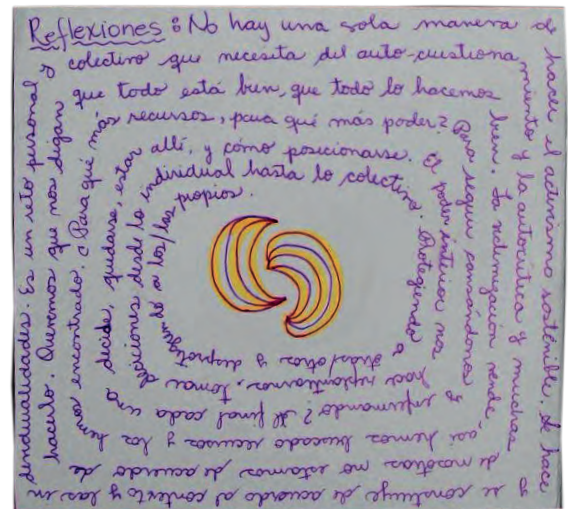 Reflexiones: No hay una sola manera de
hacer el activismo sostenible. Se hace
y se construye de acuerdo al contexto y las in
dividualidades. Es un reto personal y
colectivo que necesita del auto-cuestiona
miento y la autocrítica y muchas
de nosotras no estamos de acuerdo de
hacerlo. Queremos que nos digan
que todo está bien, que todo lo hacemos
bien. La victimización vende
así, hemos buscado recursos y los hemos
encontrado. ¿Para qué
más recursos, para qué más poder?
Para seguir y
enfermando? Al final cada una
decide, quedarse, estar
allí, y cómo posicionarse.
El poder interior nos
hace replantearnos, tomar
decisiones desde lo individual hasta lo colectivo.
Protegiendo a
otras/otros y desprote
giendo a los/las propios.